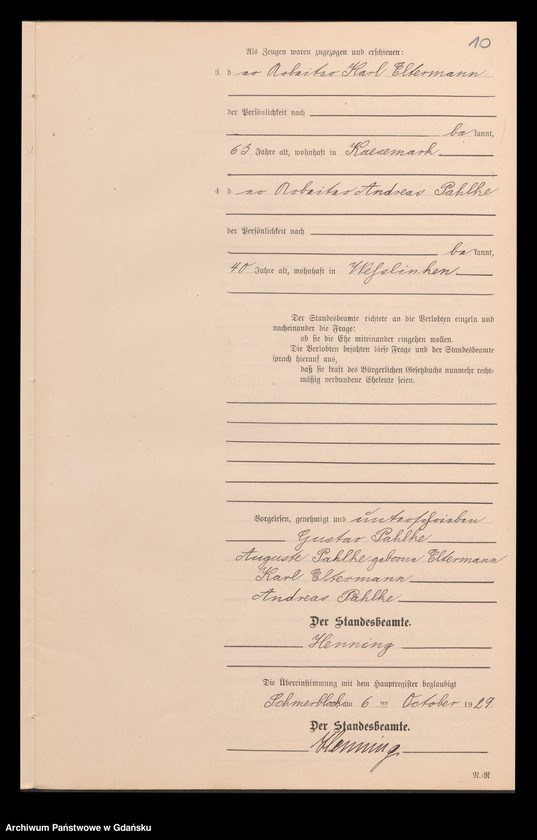 10
Als Zeugen waren zugezogen und erschienen:
3. der Arbeiter Karl Eltermann
der Persönlichkeit nach
bekannt,
63 Jahre alt, wohnhaft in Kaesemark
4. der Arbeiter Andreas Pahlke
der Persönlichkeit nach
bekannt,
40 Jahre alt, wohnhaft in Weßlinken
Der Standesbeamte richtete an die Verlobten einzeln und
nacheinander die Frage:
ob sie die Ehe miteinander eingehen wollen.
Die Verlobten bejahten diese Frage und der Standesbeamte
sprach hierauf aus,
daß sie kraft des Bürgerlichen Gesetzbuchs nunmehr recht-
mäßig verbundene Eheleute seien.
Vorgelesen, genehmigt und unterschrieben
Gustav Pahlke
Auguste Pahlke geborne Eltermann
Karl Eltermann
Andreas Pahlke
Der Standesbeamte.
Henning
Die Übereinstimmung mit dem Hauptregister beglaubigt
Schmerblock am 6 ten October 1929.
Der Standesbeamte.
Henning
Archiwum Państwowe w Gdańsku